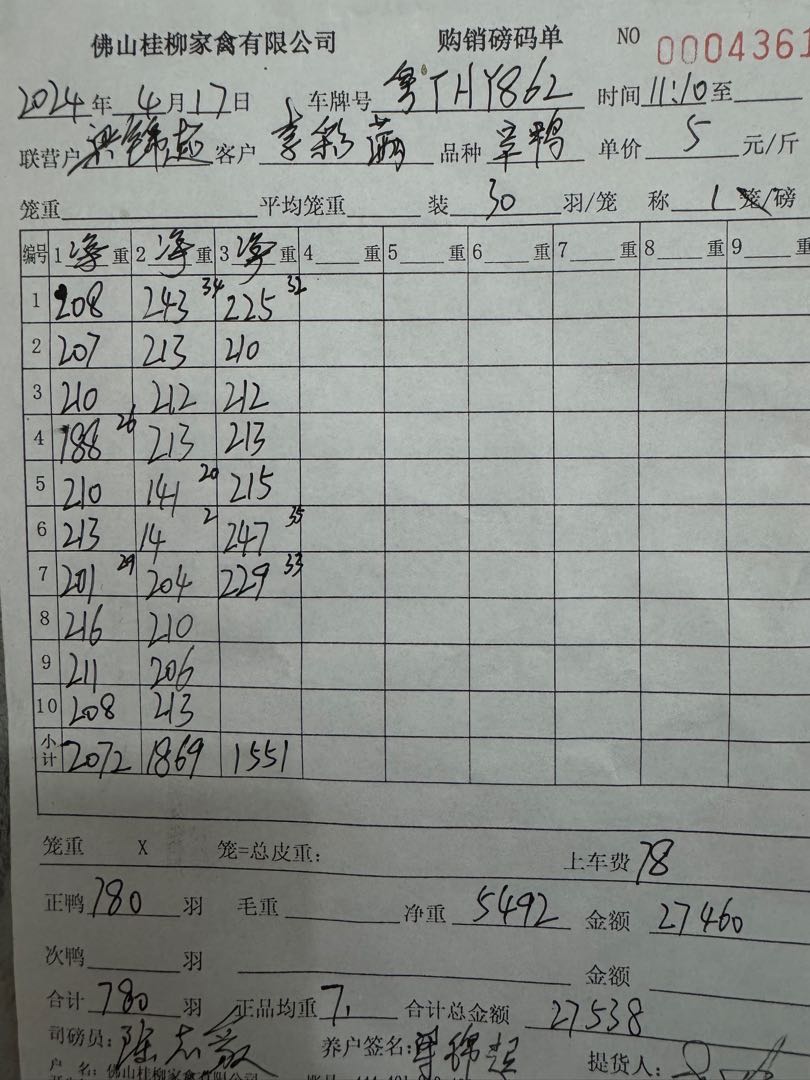 佛山桂柳家禽有限公司 购销磅码单 NO 0004361
2024年 4月17日 车牌号 粤THY862 时间 11:10至
联营户 梁锦超 客户 李彩 品种 单价 5 元/斤
笼重 平均笼重 装 30 羽/笼 称 1 笼/磅
编号 1 净 重 2 净 重 3 净 重 4 重 5 重 6 重 7 重 8 重 9 重
1 208 243 34 225 32
2 207 213 210
3 210 212 212
4 188 26 213 213
5 210 141 20 215
6 213 14 2 247 35
7 201 29 204 229 33
8 216 210
9 211 206
10 208 213
小计 2072 1869 1551
笼重 X 笼=总皮重: 上车费 78
正鸭 780 羽 毛重 净重 5492 金额 27460
次鸭 羽 金额
合计 780 羽 正品均重 7. 合计总金额 27538
司磅员: 陈志 养户签名: 梁锦超 提货人:
户 名: 佛山桂柳家禽有限公司